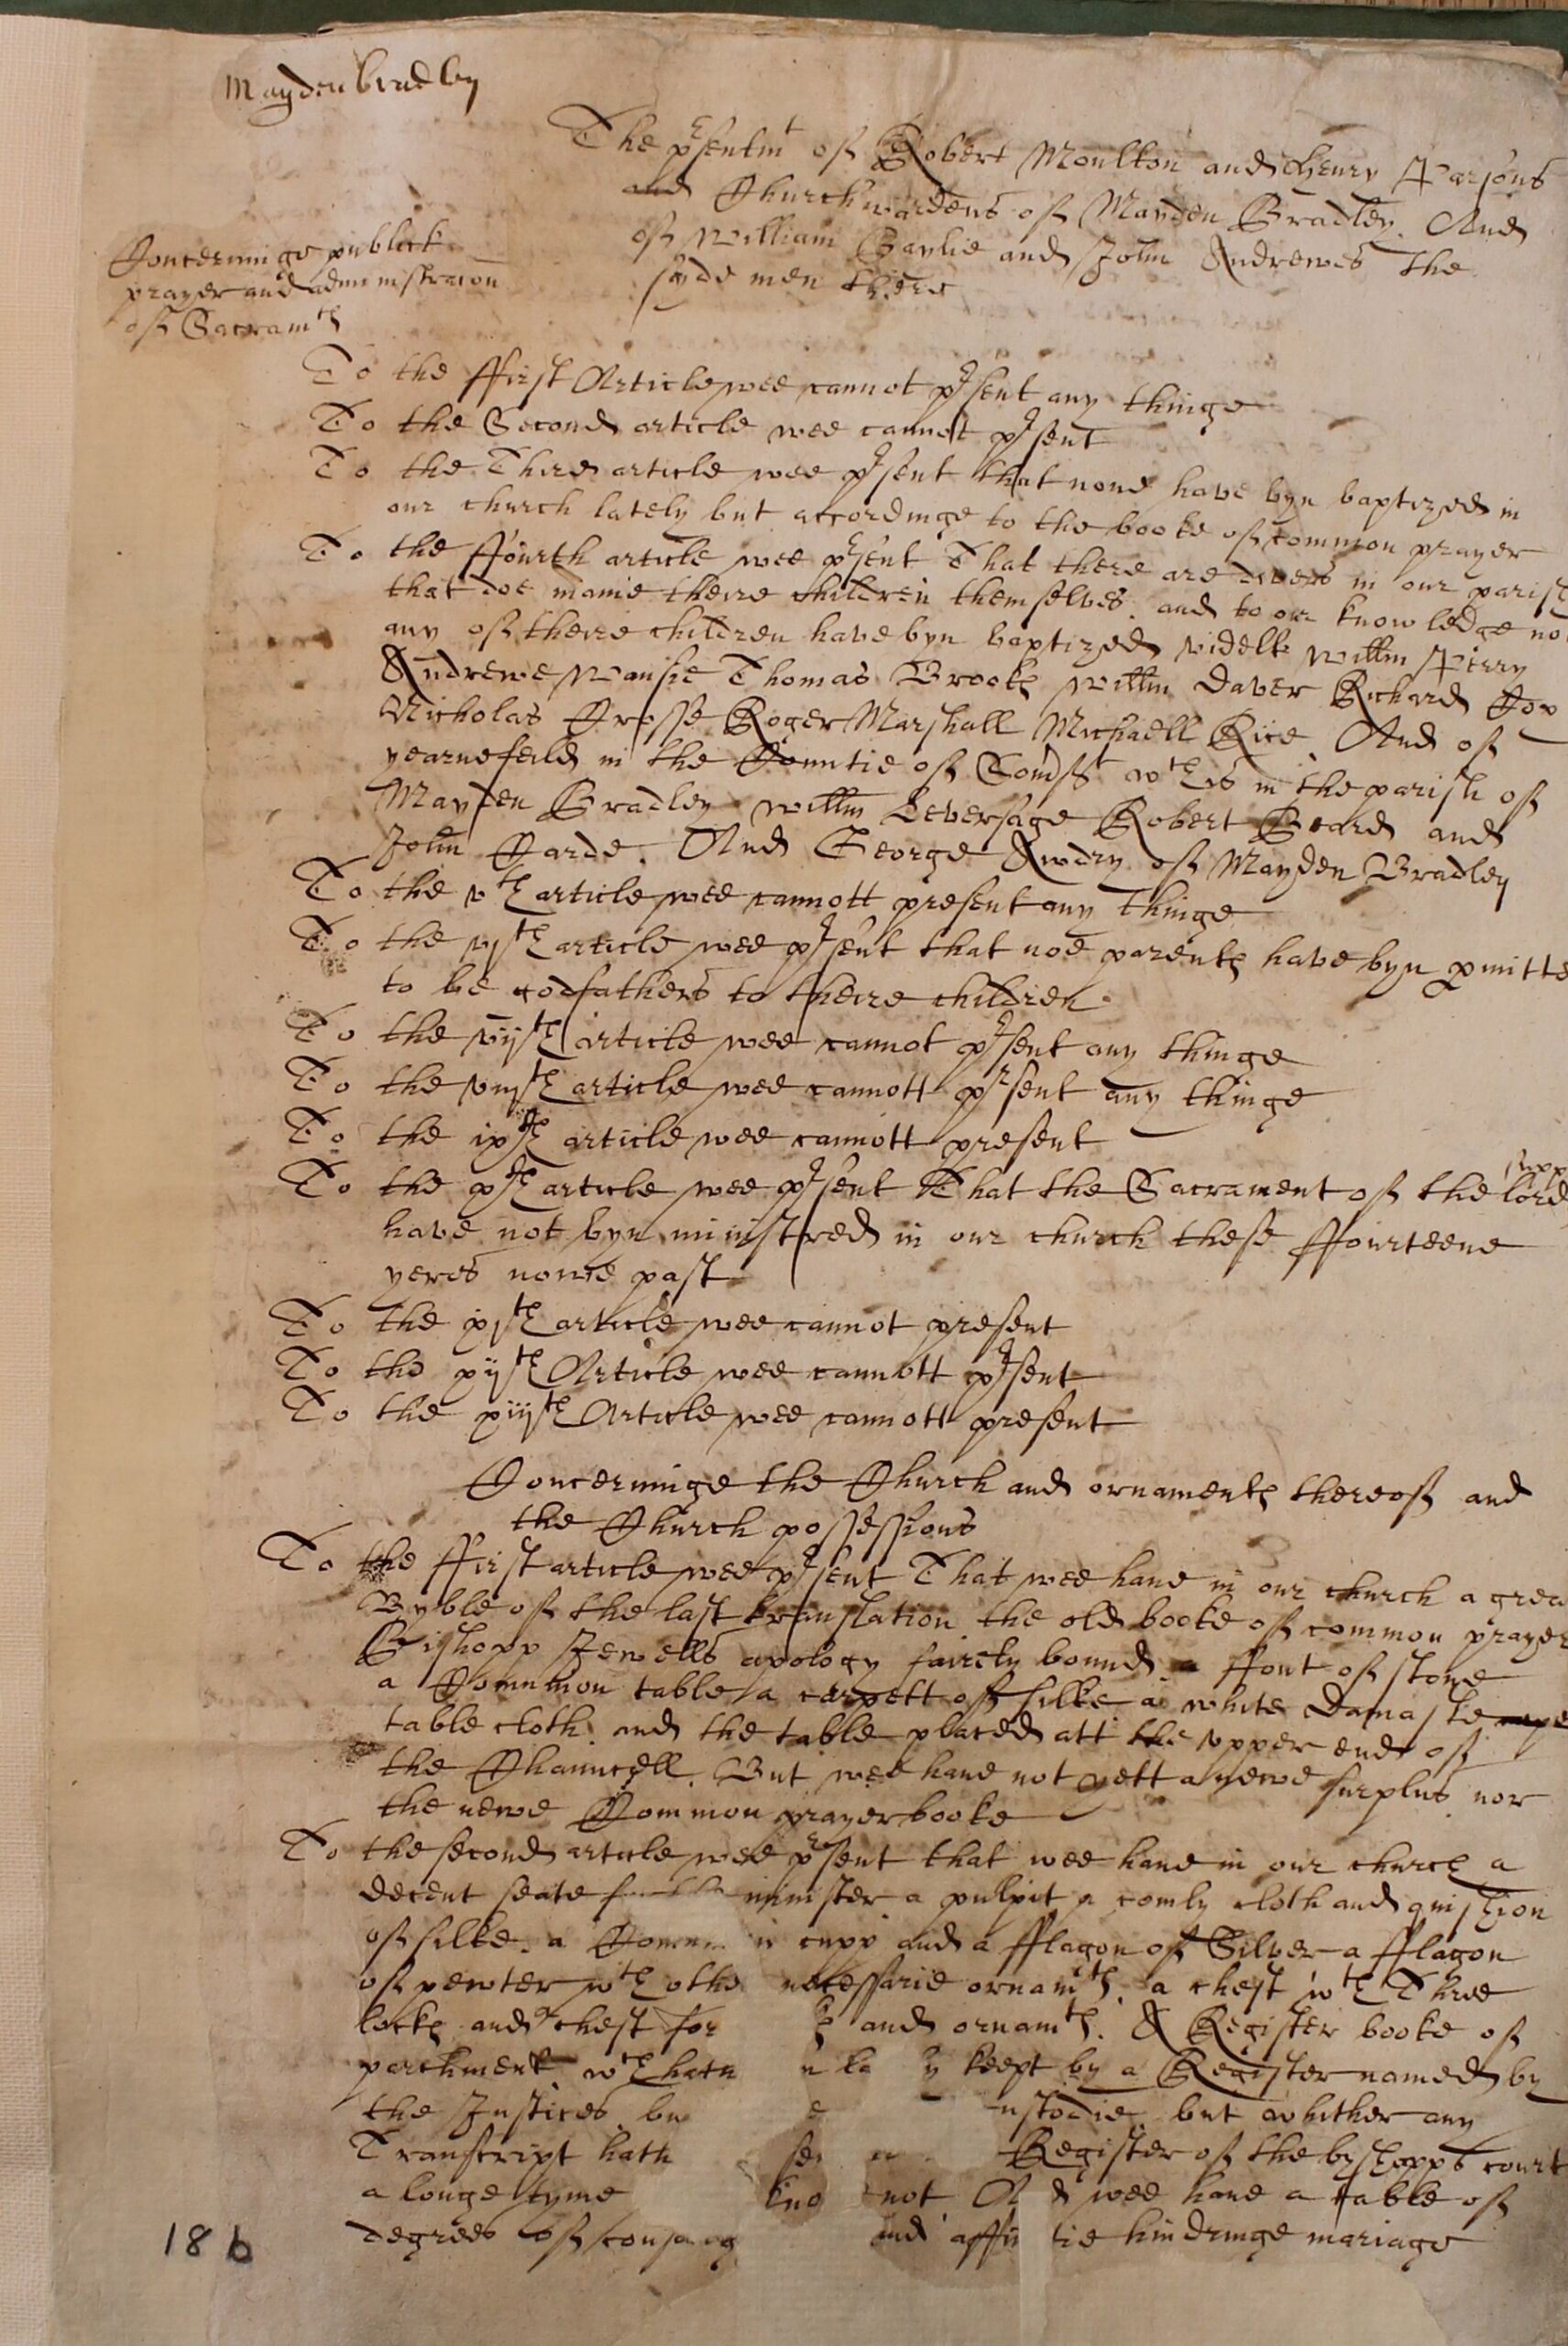 Mayden bradley
The p'sentmt of Robert Moulton and Henry Parsons
and Churchwardens of Mayden Bradley. And
of William Baylie and John Andrewes the
syde men there
Concerninge publick
prayer and administracon
of Sacramts
To the ffirst Article wee cannot p'sent any thinge
To the Second article wee cannot p'sent
To the Third article wee p'sent that none have byn baptized in
our church lately but accordinge to the booke of common prayer
To the ffourth article wee p'sent That there are divers in our parish
that doe namie theire children themselves and to our knowledge not
any of theire children have byn baptized videlt Willm Pirry
Andrewe Wansie Thomas Brookes Willm Daver Richard
Nicholas Crosse Roger Marshall Michaell Rice. And of
yearnefeild in the Countie of Somst wch is in the parish of
Mayden Bradley Willm Leversage Robert Beard and
John Carde. And George Awdry of Mayden Bradley
To the vth article wee cannott present any thinge
To the vjth article wee p'sent that noe parentes have byn pmitte
to be godfathers to theire children
To the vijth article wee cannot p'sent any thinge
To the viijth article wee cannott p'sent any thinge
To the ixth article wee cannott present
To the xth article wee p'sent That the Sacrament of the lords supp
have not byn ministred in our church these ffourteene
yeres nowe past
To the xjth article wee cannot present
To the xijth Article wee cannott p'sent
To the xiijth Article wee cannott present
Concerninge the Church and ornamentes thereof and
the Church possessions
To the ffirst article wee p'sent That wee have in our church a grea
Byble of the last translation the old booke of common prayer
Bishopp Jewells apology fairely bound a ffont of stone
a Common table a carpett of silke a white Damaske
table cloth and the table placed att the upper end of
the Chauncell. But wee have not yett a newe surplus nor
the newe Common prayer booke
To the second article wee p'sent that wee have in our church a
decent seate for the minister a pulpit a comly cloth and quishion
of silke. a cupp and a fflagon of Silver a fflagon
of pewter wth othe necessarie ornamts. a chest wth Three
lockes and a chest for and ornamts. A Register booke of
parchment wch hath keept by a Register named by
the Justices bu ustodie. but whither any
Transcript hath Register of the bysshopps court
a longe tyme kno not A d wee have a table of
degrees of consang and affi tie hindringe mariage
18 b